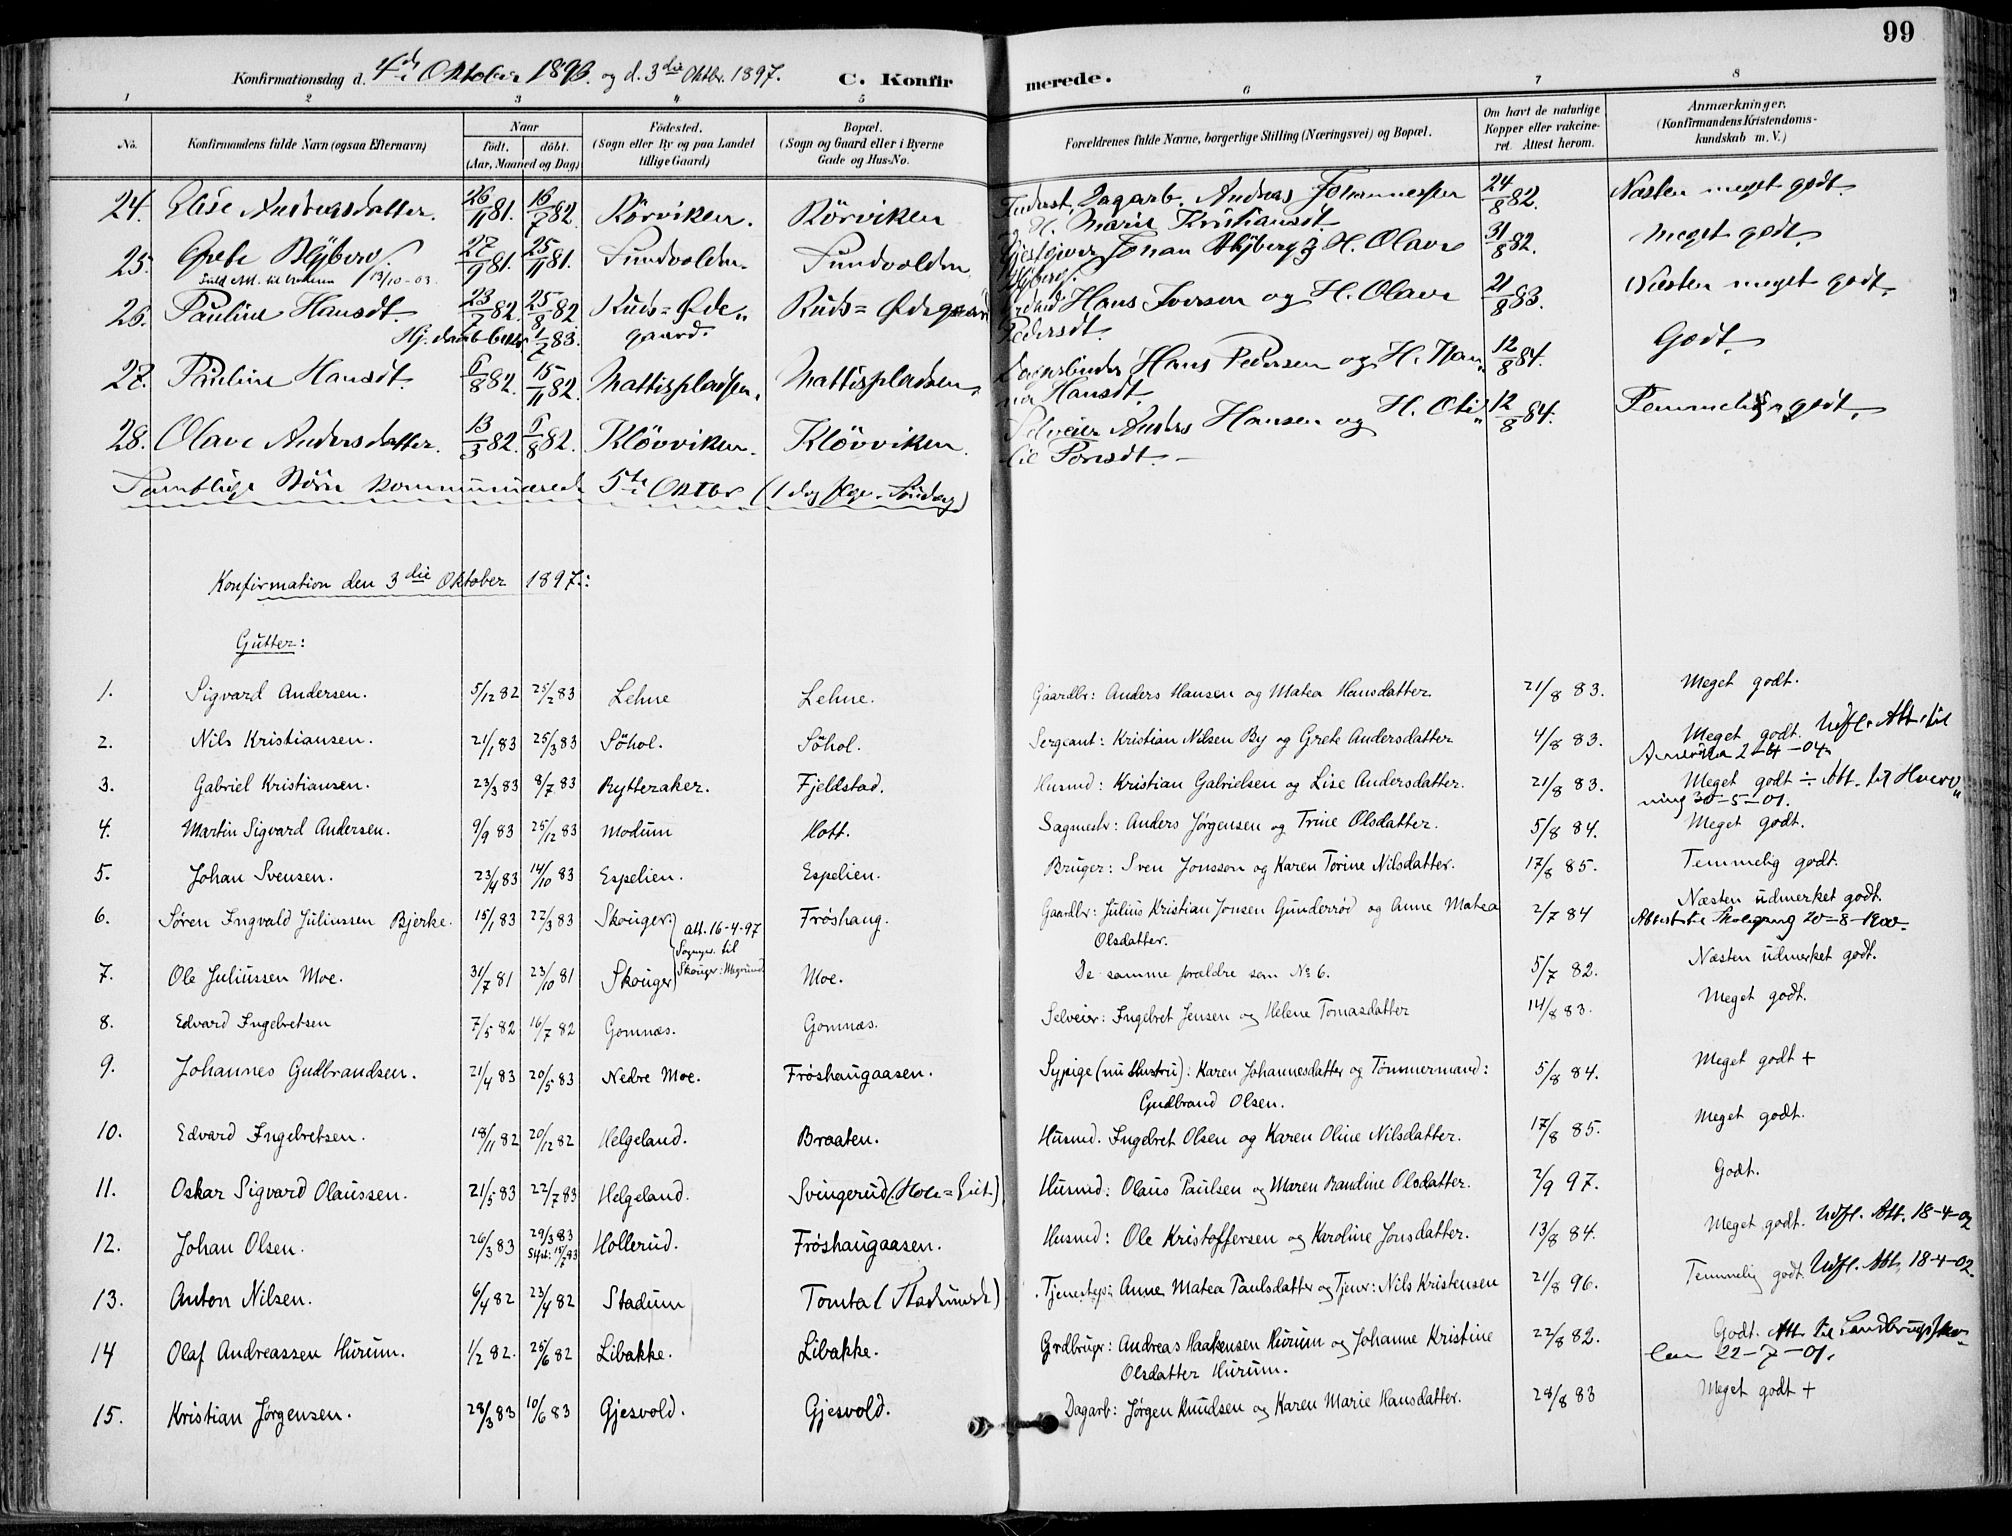 99
Konfirmationsdag d. 4de Oktober 1896. og d. 3die Oktbr. 1897. C. Konfirmerede.
1 2 3 4 5 6 7 8
No. Konfirmandens fulde Navn (ogsaa Efternavn) Naar født. døbt. (Aar, Maaned og Dag) Fødested. (Sogn eller By og paa Landet tillige Gaard) Bopæl. (Sogn og Gaard eller i Byerne Gade og Hus-No. Forældrenes fulde Navne, borgerlige Stilling (Næringsvei) og Bopæl. Om havt de naturlige Kopper eller vakcineret. Attest herom. Anmærkninger. (Konfirmandens Kristendomskundskab m. V.)
24. Elise Andreasdatter. 26/11 81. 16/7 82. Rörviken. Rörviken Inderst, Dagarb. Andreas Johannessen 24/8 82. Næsten meget godt.
og H. Marie Kristiansdt.
25. Grete Blyberg. 27/9 81. 25/11 81. Sundvolden. Sundvolden Gjestgiver Johan Blyberg og H. Olave 31/8 82. Meget godt.
13/10-03. Blyberg.
26. Pauline Hansdt. 23/7 82. 25/8 82 Ruds=Øde- Ruds=Ødegaard Hans Iversen og H. Olave 21/8 83. Næsten meget godt.
Hj. døbt 1/7 83. gaard. Pedersdt.
27. Pauline Hansdt. 6/8 82. 15/11 82. Mattispladsen. Mattispladsen. Hans Pedersen og H. Han- 12/8 84. Godt.
na Hansdt.
28. Olave Andersdatter. 13/3 82. 6/8 82. Klövviken. Klövviken. Selveier Anders Hansen og H. Oti- 12/8 84. Temmelig godt.
lie Poulsdt.
Samtlige Börn kommunicerede 5te Oktbr (1 dag Søndag)
Konfirmation den 3die Oktober 1897.:
Gutter:
1. Sigvard Andersen. 5/12 82 25/2 83 Lehne Lehne. Gaardbr: Anders Hansen og Matea Hansdatter. 21/8 83. Meget godt.
2. Nils Kristiansen. 21/1 83 25/3 83 Söhol. Söhol. Sergeant: Kristian Nilsen By og Grete Andersdatter 4/8 83. Meget godt. Udfl. Att. til
2-4-04.
3. Gabriel Kristiansen. 23/3 83 8/7 83 Rytteraker. Fjeldstad. Husmd: Kristian Gabrielsen og Lise Andersdatter. 21/8 83. Meget godt ÷ Att. til Hverv-
ning 30-5-01.
4. Martin Sigvard Andersen. 9/9 83 25/12 83 Modum Hott. Sagmestr: Anders Jørgensen og Trine Olsdatter. 5/8 84. Meget godt.
5. Johan Svensen. 23/4 83 14/10 83 Espelien. Espelien. Bruger: Sven Jonsson og Karen Torine Nilsdatter. 17/8 85. Temmelig godt.
6. Søren Ingvald Juliussen Bjerke. 15/1 83 22/3 83 Skouger. Frøshaug. Gaardbr: Julius Kristian Jonsen Gunderrød og Anne Matea 2/7 84 Næsten udmerket godt.
att. 16-4-97 Olsdatter. Attest til Skolegang 20-8-1900.
7. Ole Juliussen Moe. 31/7 81 23/10 81 Skouger Sogngr. til Skouger: Moe. De samme forældre som No 6. 5/7 82. Næsten udmerket godt.
8. Edvard Ingebretsen 7/5 82 16/7 82 Gomnæs. Gomnæs. Selveier: Ingebret Jensen og Helene Tomasdatter 14/8 83. Meget godt.
9. Johannes Gudbrandsen. 21/4 83 20/5 83 Nedre Moe. Frøshaugaasen. Sypige (nu Hustru): Karen Johannesdatter og Tømmermand: 5/8 84. Meget godt +
Gudbrand Olsen.
10. Edvard Ingebretsen. 18/11 82 20/12 82 Helgeland. Braaten. Husmd. Ingebret Olsen og Karen Oline Nilsdatter. 17/8 85. Meget godt.
11. Oskar Sigvard Olaussen. 21/5 83 22/7 83 Helgeland. Svingerud (Hole=Eiet) Husmd: Olaus Paulsen og Maren Randine Olsdatter. 2/9 97. Godt.
12. Johan Olsen. 26/3 83 29/3 83 Hollerud. Frøshaugaasen. Husmd: Ole Kristoffersen og Karoline Jonsdatter. 13/8 84. Meget godt. Udfl. Att. 18-4-02
13. Anton Nilsen. 6/4 82 23/4 82 Stadum Tomta (Stadumeiet) Tjenestepi: Anne Matea Paulsdatter og Tjenr: Nils Kristensen 21/8 96. Temmelig godt. Udfl. Att. 18-4-02.
14 Olaf Andreassen Hurum. 1/2 82. 25/6 82 Libakke. Libakke. Grdbrugr: Andreas Haakensen Hurum og Johanne Kristine 22/8 82. Godt. Att. til Landbrugssko-
Olsdatter Hurum. len 22-7-01.
15. Kristian Jørgensen. 28/3 83 10/6 83 Gjesvold. Gjesvold. Dagarb: Jørgen Knudsen og Karen Marie Hansdatter. 28/8 83 Meget godt +